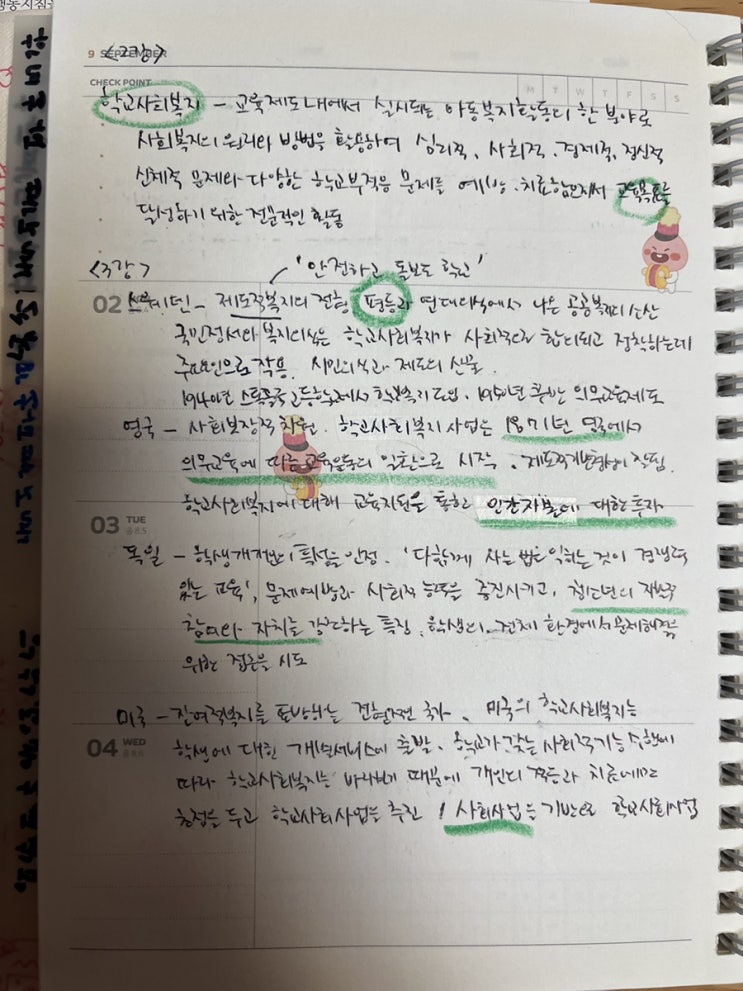 9 SEPTEMBER
<2강>
CHECK POINT
M T W T F S S
학교사회복지 - 교육제도내에서 실시되는 아동복지활동의 한 분야로
사회복지의 원리와 방법을 활용하여 심리적, 사회적, 경제적, 정신적
신체적 문제와 다양한 학교부적응 문제를 예방, 치료함으로써 교육목표를
달성하기 위한 전문적인 활동
<3강>
'안전하고 돌보는 학교'
02 스웨덴 - 제도적복지의 전형 평등과 연대의식에서 나온 공공복지의 산산
국민정서와 복지의식은 학교사회복지가 사회적으로 합의되고 정착하는데
주요인으로 작용. 시민의식과 제도의 산물.
1940년 스톡홀름 고등학교에서 학교복지도입. 1950년 후반 의무교육제도
영국 - 사회보장적 차원. 학교사회복지 사업은 1871년 영국에서
의무교육에 따른 교육운동의 일환으로 시작.
학교사회복지에 대해 교육지원을 통한 인간자본에 대한 투자
03 TUE
음 8.5
독일 - 학생개개인의 특성을 인정. '다함께 사는 법을 익히는 것이 경쟁력
있는 교육', 문제예방과 사회적 능력을 증진시키고, 청소년의 자발적
참여와 자치를 강조하는 특징. 학생의 전체 환경에서 문제해결을
위한 접근을 시도
미국 - 잔여적복지를 표방하는 전형적인 국가. 미국의 학교사회복지는
04 WED
음 8.6
학생에 대한 개별서비스에 출발. 학교가 갖는 사회적기능 수행에
따라 학교사회복지는 바라보기 때문에 개인의 적응과 치료에만
초점을 두고 학교사회사업을 추진 / 사회사업을 기반으로 학교사회사업